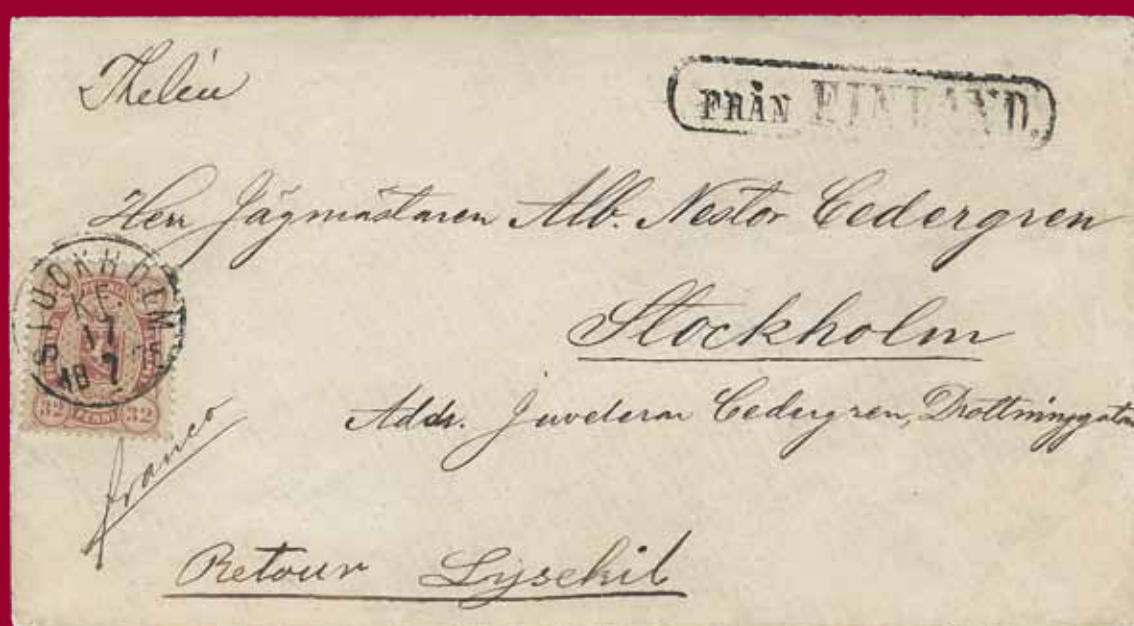 Thelin
FRÅN FINLAND.
Herr Jägmästaren Alb. Nestor Cedergren
STOCKHOLM
KE.
17
18 7
Stockholm
32 PENNI 32
Addr. Juveleraren Cedergren, Drottninggatan
franco
Retour Lysekil